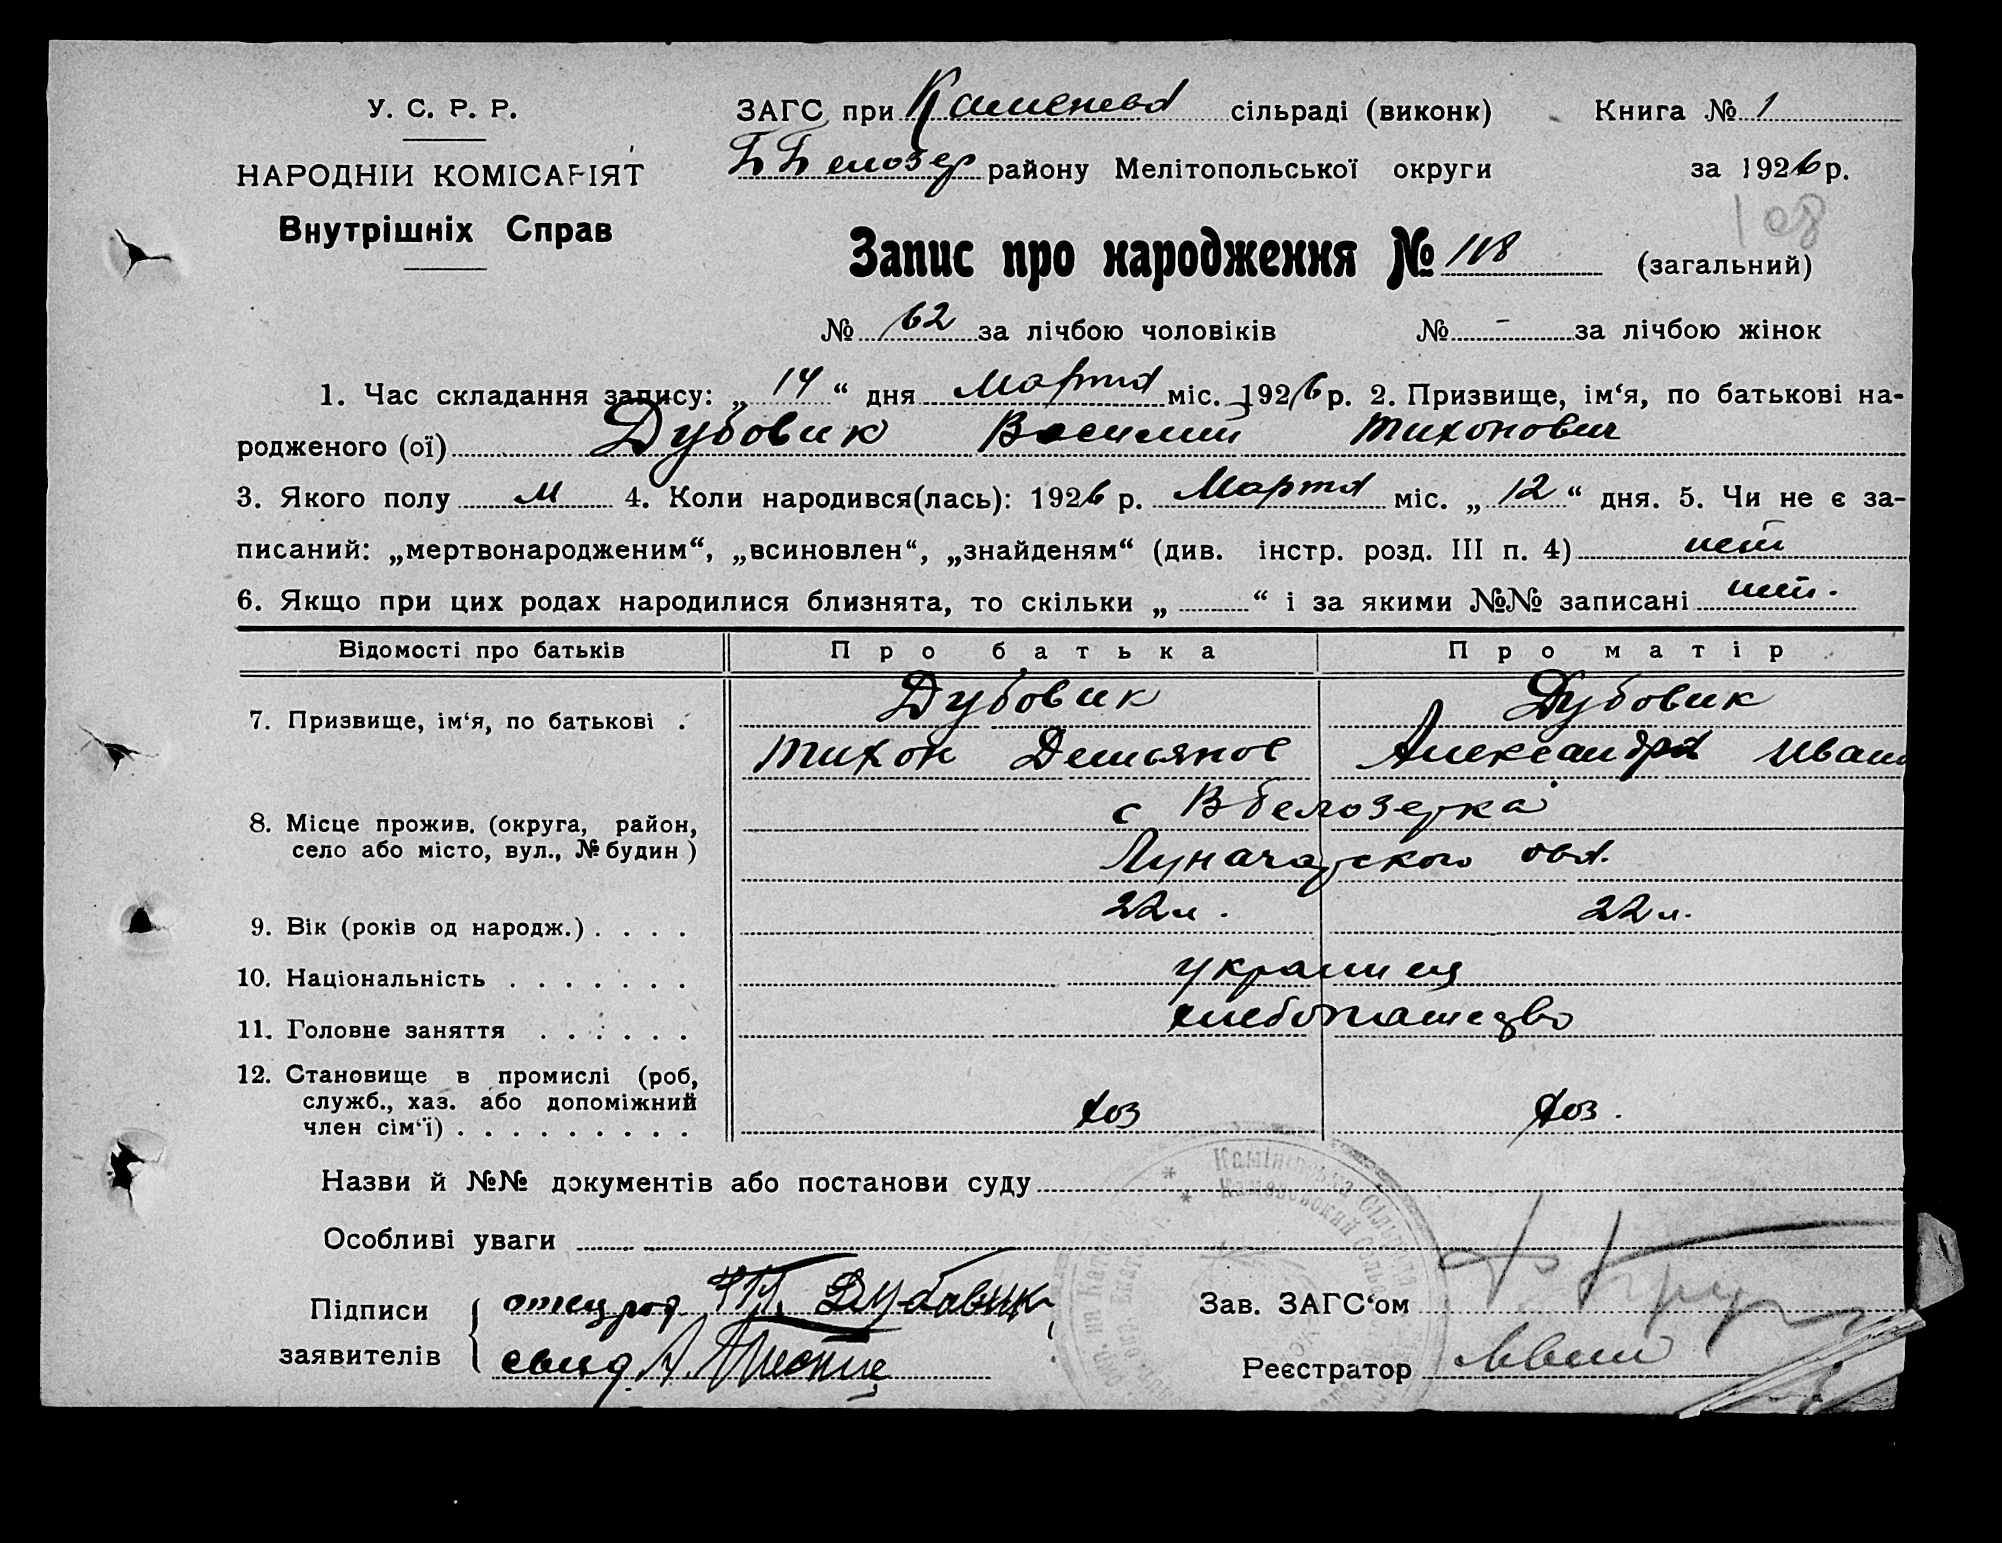 У. С. Р. Р.
НАРОДНІЙ КОМІСАРІЯТ
Внутрішніх Справ
ЗАГС при Каменева сільраді (виконк) Книга № 1
Б Белозер району Мелітопольської округи за 1926 р.
108
Запис про народження № 118 (загальний)
№ 62 за лічбою чоловіків № - за лічбою жінок
1. Час складання запису: „ 14 “ дня Марта міс. 1926 р. 2. Призвище, ім‘я, по батькові на-
родженого (ої) Дубовик Василий Тихонович
3. Якого полу М 4. Коли народився(лась): 1926 р. Марта міс. „ 12 “ дня. 5. Чи не є за-
писаний: „мертвонародженим“, „всиновлен“, „знайденям“ (див. інстр. розд. III п. 4) нет
6. Якщо при цих родах народилися близнята, то скільки „ “ і за якими №№ записані нет.
Відомості про батьків Про батька Про матір
7. Призвище, ім‘я, по батькові . Дубовик Дубовик
Тихон Демьянов Александра Иван
8. Місце прожив. (округа, район, село або місто, вул., № будин ) с Вбелозерка
Луначарского
9. Вік (років од народж.) . . . . 22 л. 22 л.
10. Національність . . . . . . . украинец
11. Головне заняття . . . . . . хлебопашество
12. Становище в промислі (роб,
служб., хаз. або допоміжний
член сім‘ї) . . . . . . . . . Хоз Хоз.
Назви й №№ документів або постанови суду
Особливі уваги
Підписи
заявителів
отец Дубовик
свид. А.
Зав. ЗАГС‘ом
Реєстратор